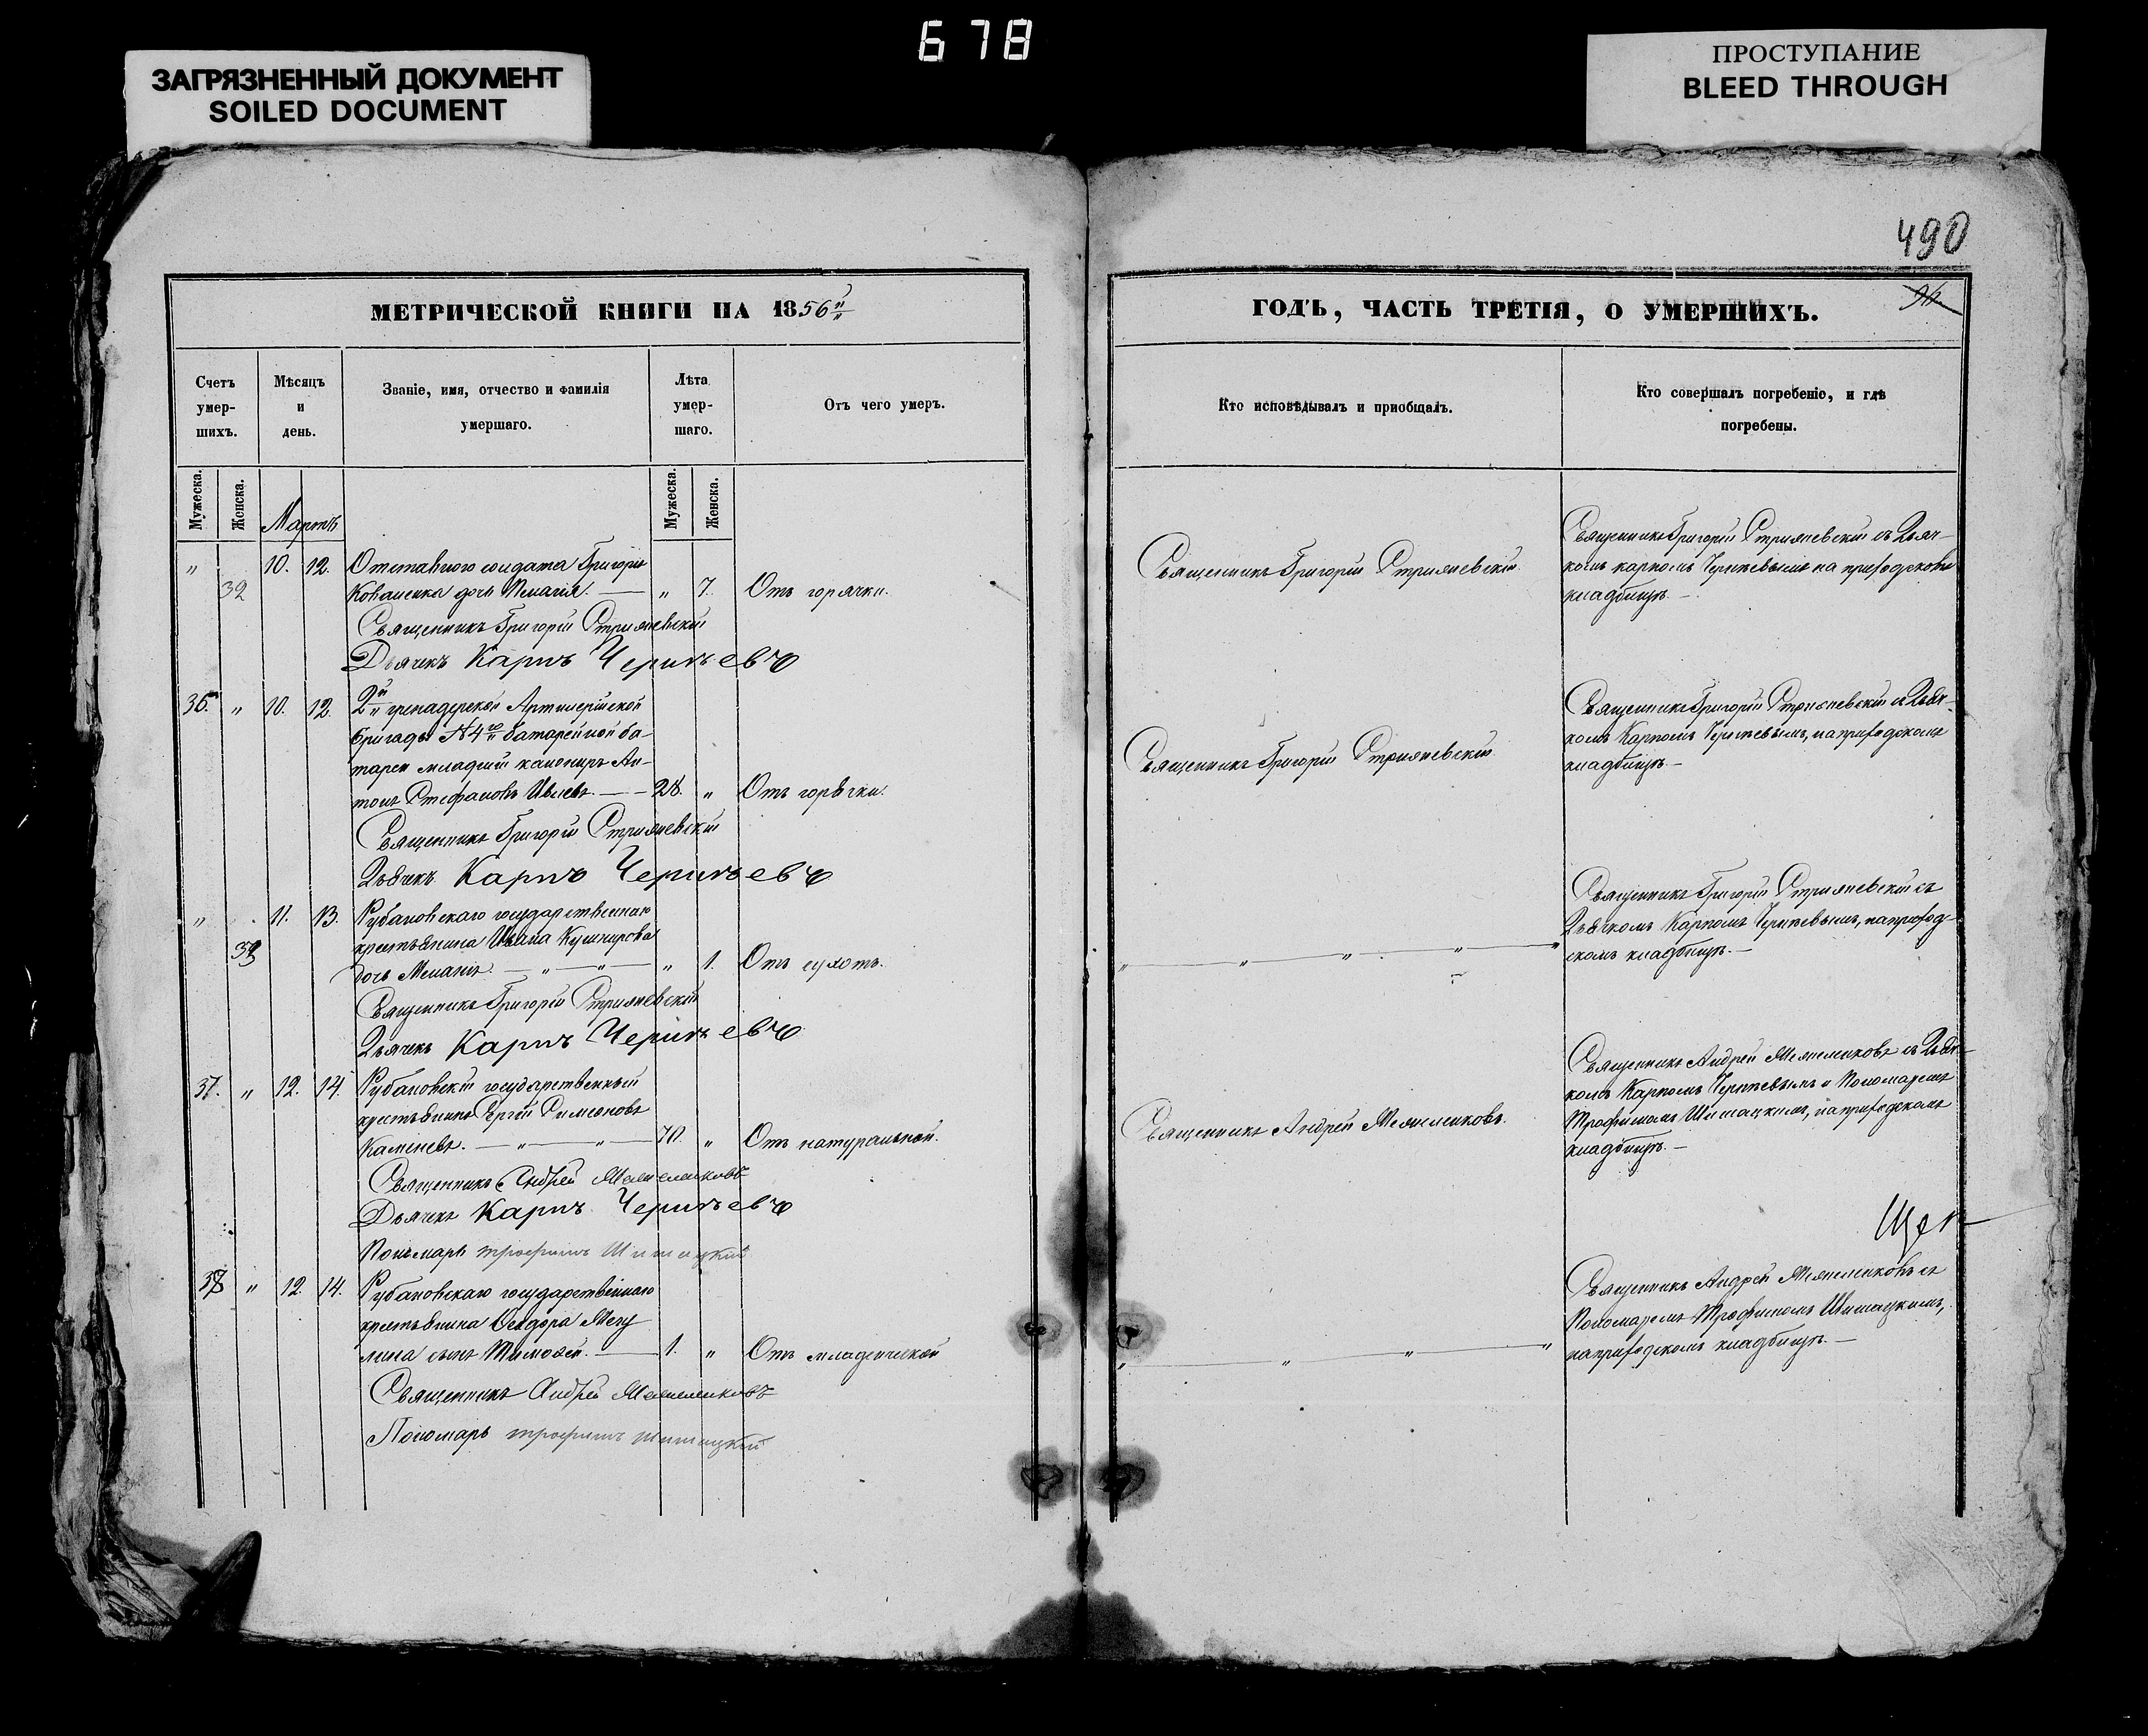 678
ЗАГРЯЗНЕННЫЙ ДОКУМЕНТ
SOILED DOCUMENT
ПРОСТУПАНИЕ
BLEED THROUGH
490
МЕТРИЧЕСКОЙ КНИГИ НА 1856й
Счетъ умер-шихъ.
Мѣсяцъ и день.
Званіе, имя, отчество и фамилія умершаго.
Лѣта умер-шаго.
Отъ чего умеръ.
Мужеска.
Женска.
Мартъ
Мужеска.
Женска.
" 10. 12. Отставного солдата Григорія
32 Коваленка дочь Пелагія. — " 7. Отъ горячки.
Священникъ Григорій
Дьячекъ Карпъ
35. " 10. 12. 2й гренадерской Артилерійской
бригады №4й батарейной ба-
тареи младшій канониръ Ан-
тонъ Стефановъ Ивлевъ. — 28. " Отъ горячки.
Священникъ Григорій
Дьячекъ Карпъ
" 11. 13. Рубановскаго государственнаго
крестьянина Ивана Кушнирова
33 дочь Меланія. — " — " — " 1. Отъ сухотъ.
Священникъ Григорій
Дьячекъ Карпъ
37. " 12. 14. Рубановскій государственный
крестьянинъ Сергій Симеоновъ
Каменевъ. — " — " — 70. " Отъ натуральной.
Священникъ Андрей
Дьячекъ Карпъ
Пономарь Трофимъ Шишацкій
38 " 12. 14. Рубановскаго государственнаго
крестьянина Ѳеодора
сынъ Тимоѳей. — 1. " Отъ младенческой
Священникъ Андрей
Пономарь Трофимъ Шишацкій
ГОДЪ, ЧАСТЬ ТРЕТІЯ, О УМЕРШИХЪ.
Кто исповѣдывалъ и приобщалъ.
Кто совершалъ погребеніе, и гдѣ погребены.
Священникъ Григорій
Священникъ Григорій съ Дьяч-
комъ Карпомъ на приходскомъ
кладбищѣ. —
Священникъ Григорій
Священникъ Григорій съ Дьяч-
комъ Карпомъ на приходскомъ
кладбищѣ. —
" — " — " — " — "
Священникъ Григорій съ
Дьячкомъ Карпомъ на приход-
скомъ кладбищѣ. —
Священникъ Андрей
Священникъ Андрей съ Дьяч-
комъ Карпомъ и Пономаремъ
Трофимомъ Шишацкимъ, на приходскомъ
кладбищѣ. —
" — " — " — "
Священникъ Андрей съ
Пономаремъ Трофимомъ Шишацкимъ,
на приходскомъ кладбищѣ. —